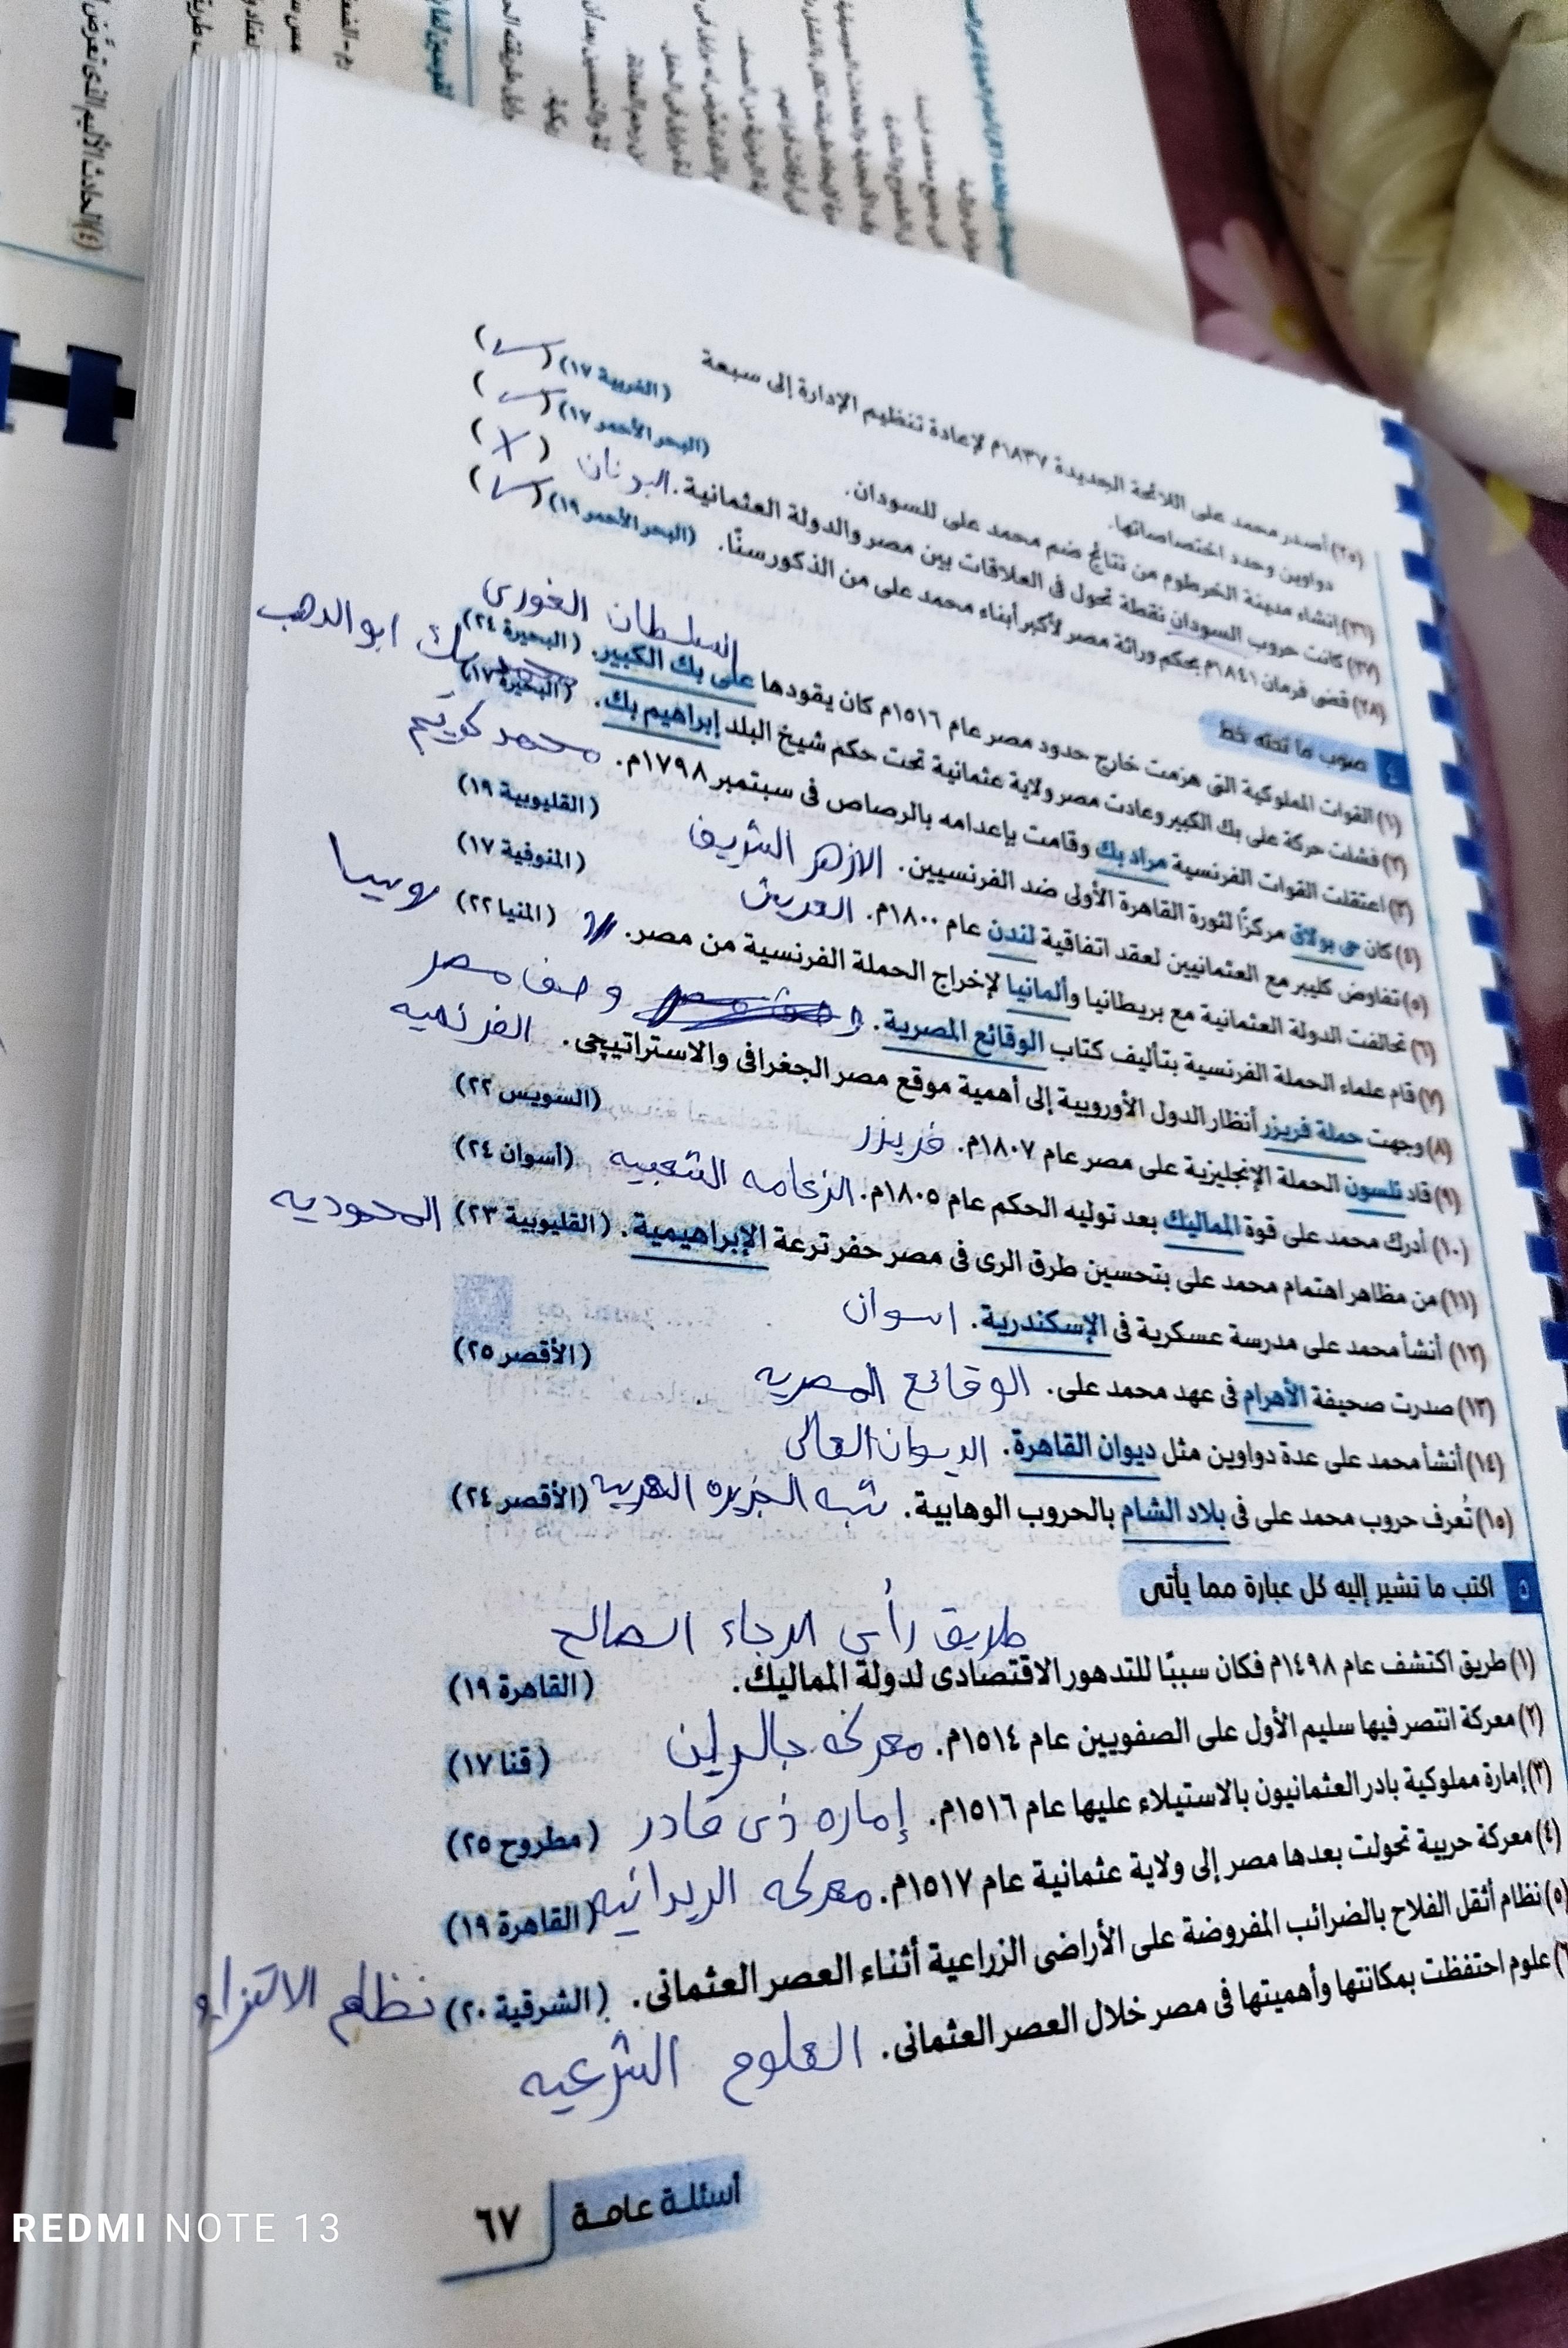 (٢٥) أصدر محمد على اللائحة الجديدة ١٨٣٧م لإعادة تنظيم الإدارة إلى سبعة
دواوين وحدد اختصاصاتها. (الغربية ١٧) (✓)
(٢٦) إنشاء مدينة الخرطوم من نتائج ضم محمد على للسودان. (البحر الأحمر ١٧) (✓)
(٢٧) كانت حروب السودان نقطة تحول فى العلاقات بين مصر والدولة العثمانية. اليونان (X)
(٢٨) قضى فرمان ١٨٤١م بحكم وراثة مصر لأكبر أبناء محمد على من الذكور سنًا. (البحر الأحمر ١٩) (✓)
٤ صوب ما تحته خط
السلطان الغورى
(١) القوات المملوكية التى هزمت خارج حدود مصر عام ١٥١٦م كان يقودها على بك الكبير. (البحيرة ٢٤)
(٢) فشلت حركة على بك الكبير وعادت مصر ولاية عثمانية تحت حكم شيخ البلد إبراهيم بك. (البحيرة ١٧) محمد بك ابو الدهب
(٣) اعتقلت القوات الفرنسية مراد بك وقامت بإعدامه بالرصاص فى سبتمبر ١٧٩٨م. محمد كريم
(٤) كان حى بولاق مركزًا لثورة القاهرة الأولى ضد الفرنسيين. الازهر الشريف (القليوبية ١٩)
(٥) تفاوض كليبر مع العثمانيين لعقد اتفاقية لندن عام ١٨٠٠م. العريش (المنوفية ١٧)
(٦) تحالفت الدولة العثمانية مع بريطانيا وألمانيا لإخراج الحملة الفرنسية من مصر. (المنيا ٢٢) روسيا
(٧) قام علماء الحملة الفرنسية بتأليف كتاب الوقائع المصرية. وصف مصر
(٨) وجهت حملة فريزر أنظار الدول الأوروبية إلى أهمية موقع مصر الجغرافى والاستراتيجى. الفرنسيه
(٩) قاد نلسون الحملة الإنجليزية على مصر عام ١٨٠٧م. فريزر (السويس ٢٢)
(١٠) أدرك محمد على قوة المماليك بعد توليه الحكم عام ١٨٠٥م. الزعامه الشعبيه (أسوان ٢٤)
(١١) من مظاهر اهتمام محمد على بتحسين طرق الرى فى مصر حفر ترعة الإبراهيمية. (القليوبية ٢٣) المحموديه
(١٢) أنشأ محمد على مدرسة عسكرية فى الإسكندرية. اسوان
(١٣) صدرت صحيفة الأهرام فى عهد محمد على. الوقائع المصريه (الأقصر ٢٥)
(١٤) أنشأ محمد على عدة دواوين مثل ديوان القاهرة. الديوان العالى
(١٥) تُعرف حروب محمد على فى بلاد الشام بالحروب الوهابية. شبه الجزيره العربيه (الأقصر ٢٤)
٥ اكتب ما تشير إليه كل عبارة مما يأتى
طريق رأس الرجاء الصالح
(١) طريق اكتشف عام ١٤٩٨م فكان سببًا للتدهور الاقتصادى لدولة المماليك. (القاهرة ١٩)
(٢) معركة انتصر فيها سليم الأول على الصفويين عام ١٥١٤م. معركه جالديران (قنا ١٧)
(٣) إمارة مملوكية بادر العثمانيون بالاستيلاء عليها عام ١٥١٦م. إماره ذى قادر (مطروح ٢٥)
(٤) معركة حربية تحولت بعدها مصر إلى ولاية عثمانية عام ١٥١٧م. معركه الريدانيه (القاهرة ١٩)
(٥) نظام أثقل الفلاح بالضرائب المفروضة على الأراضى الزراعية أثناء العصر العثمانى. (الشرقية ٢٠) نظام الالتزام
(٦) علوم احتفظت بمكانتها وأهميتها فى مصر خلال العصر العثمانى. العلوم الشرعيه
أسئلة عامة ٦٧
REDMI NOTE 13